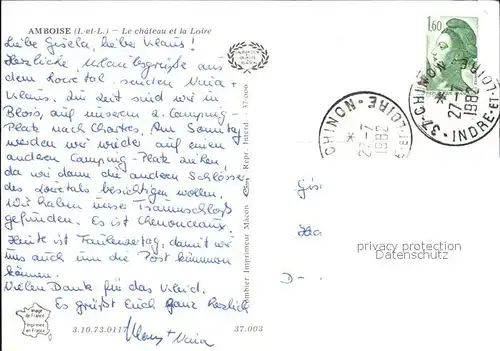 AMBOISE (I.-et-L.) — Le château et la Loire
Liebe Gisela, lieber Klaus!
Herzliche Urlaubsgrüße aus
dem Loiretal senden Nina +
Klaus. Zur Zeit sind wir in
Blois, auf unserem 2. Camping-
Platz nach Chartres. Am Sonntag
werden wir wieder auf einen
anderen Camping-Platz ziehen,
da wir dann die anderen Schlösser
des Loiretals besichtigen wollen.
Wir haben unser Traumschloß
gefunden. Es ist Chenonceaux.
Heute ist Faulenzertag, damit wir
uns auch um die Post kümmern
können.
Vielen Dank für das
Es grüßt Euch ganz herzlich
Klaus + Nina
Image de France
Imprimée en France
3.10.73.0117
37.003
Combier Imprimeur Mâcon
Repr. Interd.
37-000
1,60
37-CHINON
INDRE-ET-LOIRE
27-7
1982
CHINON
27-7
1982
ET-LOIRE
Gis
D-
privacy protection
oldthing.com